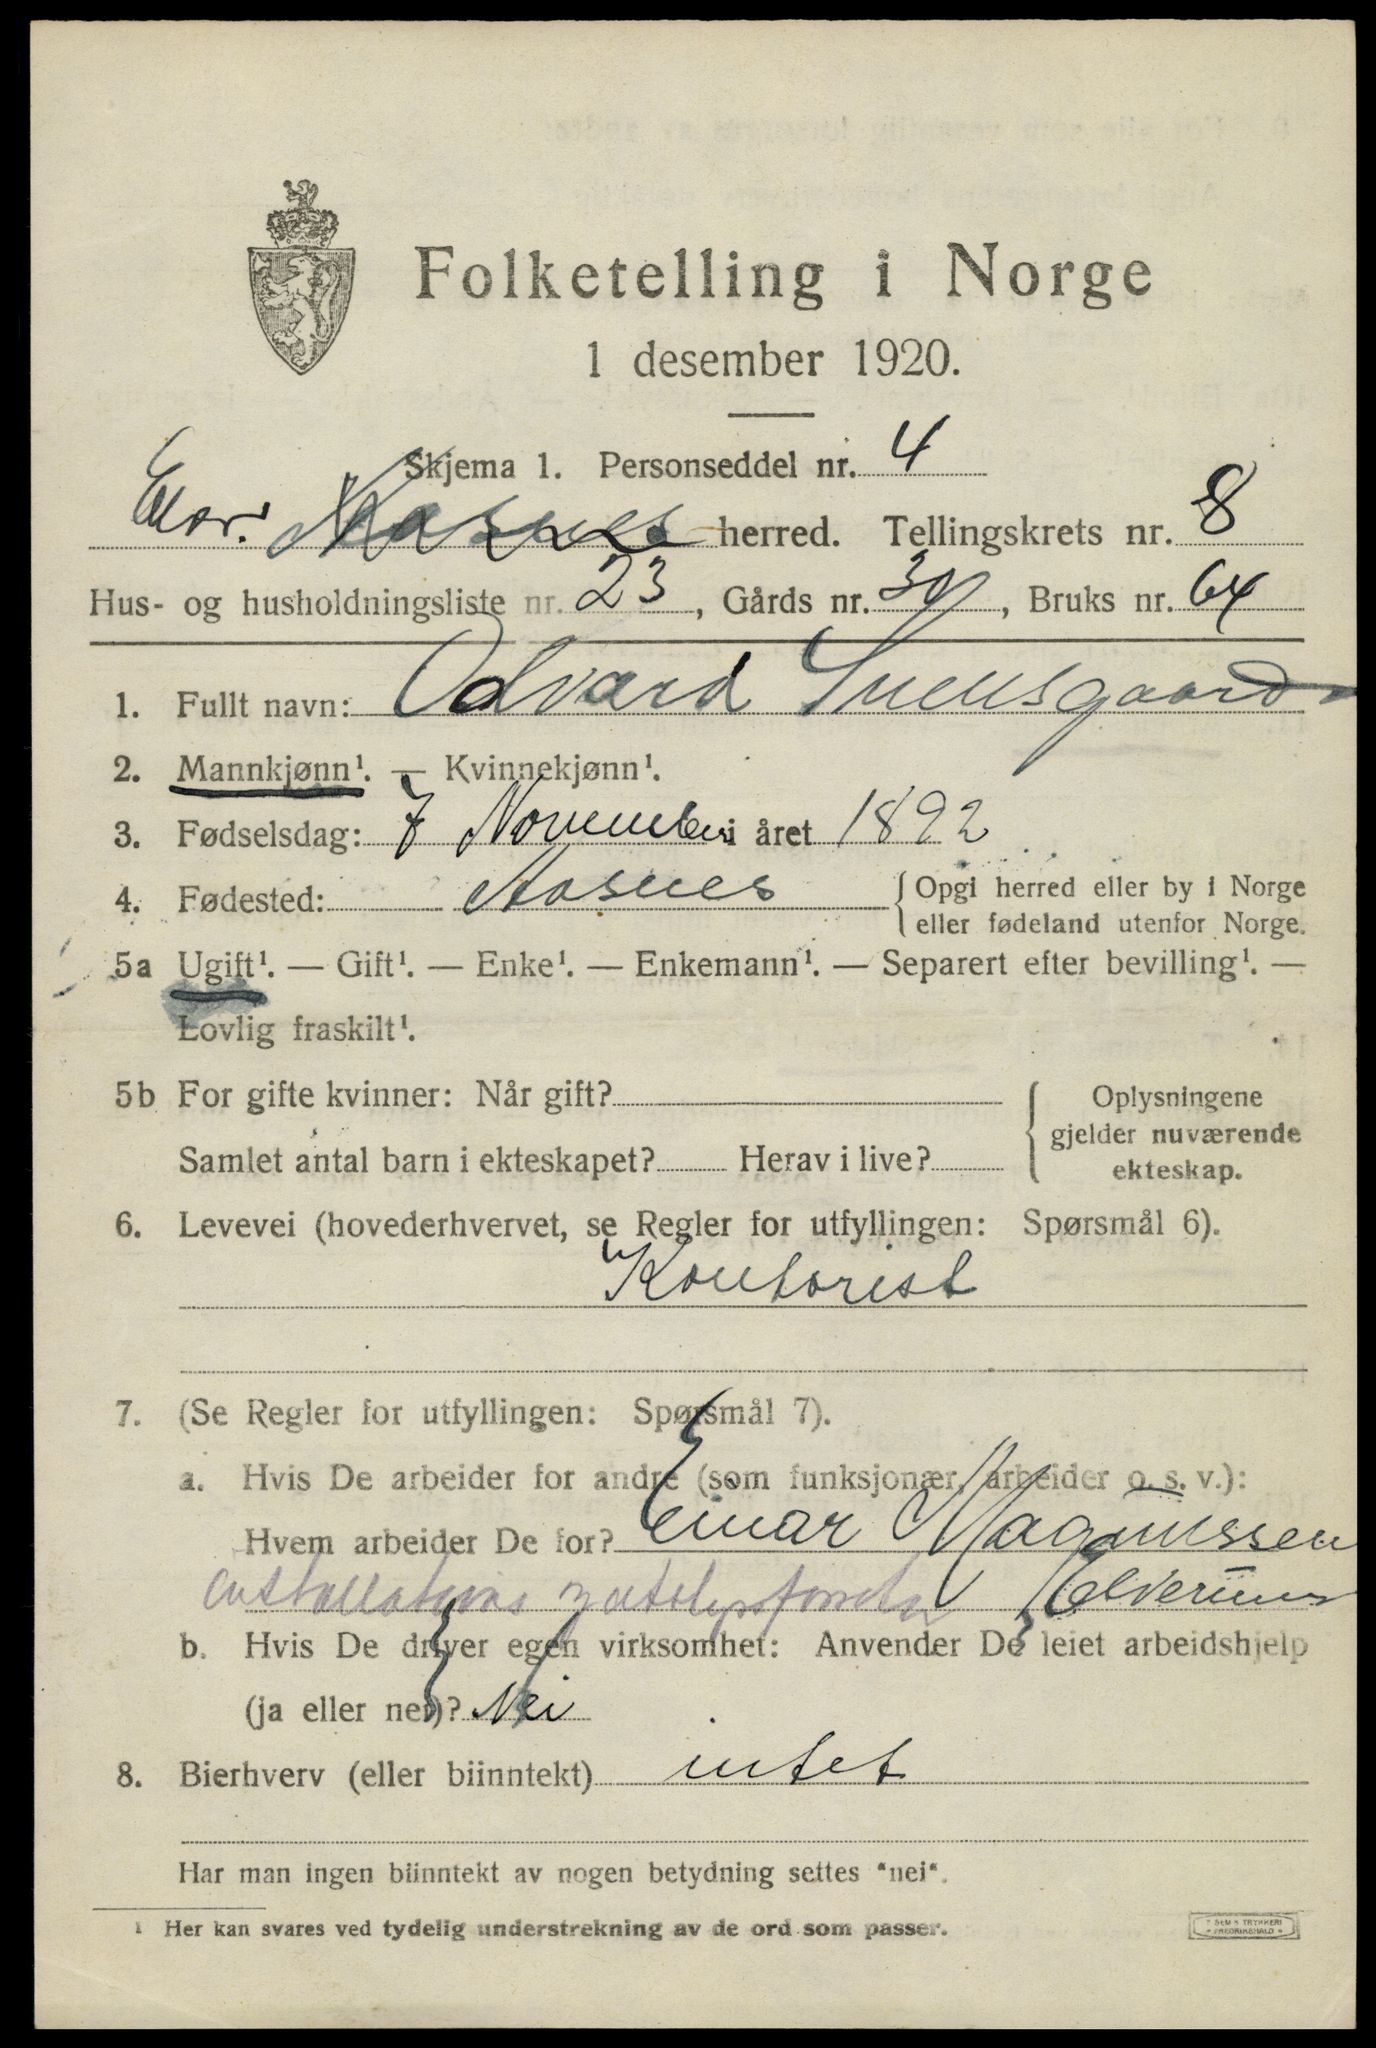 Folketelling i Norge
1 desember 1920.
Skjema 1. Personseddel nr. 4
Elver. Aasnes herred. Tellingskrets nr. 8
Hus- og husholdningsliste nr. 23, Gårds nr. 31, Bruks nr. 64
1. Fullt navn: Odvard Snensgaard
2. Mannkjønn¹. — Kvinnekjønn¹.
3. Fødselsdag: 7 November i året 1892
4. Fødested: Aasnes { Opgi herred eller by i Norge
eller fødeland utenfor Norge.
5a Ugift¹. — Gift¹. — Enke¹. — Enkemann¹. — Separert efter bevilling¹. —
Lovlig fraskilt¹.
5b For gifte kvinner: Når gift? { Oplysningene
gjelder nuværende
Samlet antal barn i ekteskapet? Herav i live?
ekteskap.
6. Levevei (hovederhvervet, se Regler for utfyllingen: Spørsmål 6).
Kontorist
7. (Se Regler for utfyllingen: Spørsmål 7).
a. Hvis De arbeider for andre (som funksjonær, arbeider o. s. v.):
Hvem arbeider De for? Einar Magnussen
Elverum
b. Hvis De driver egen virksomhet: Anvender De leiet arbeidshjelp
(ja eller nei)? Nei
8. Bierhverv (eller biinntekt) intet
Har man ingen biinntekt av nogen betydning settes "nei".
1 Her kan svares ved tydelig understrekning av de ord som passer.
SEM'S TRYKKERI
FREDRIKSHALD